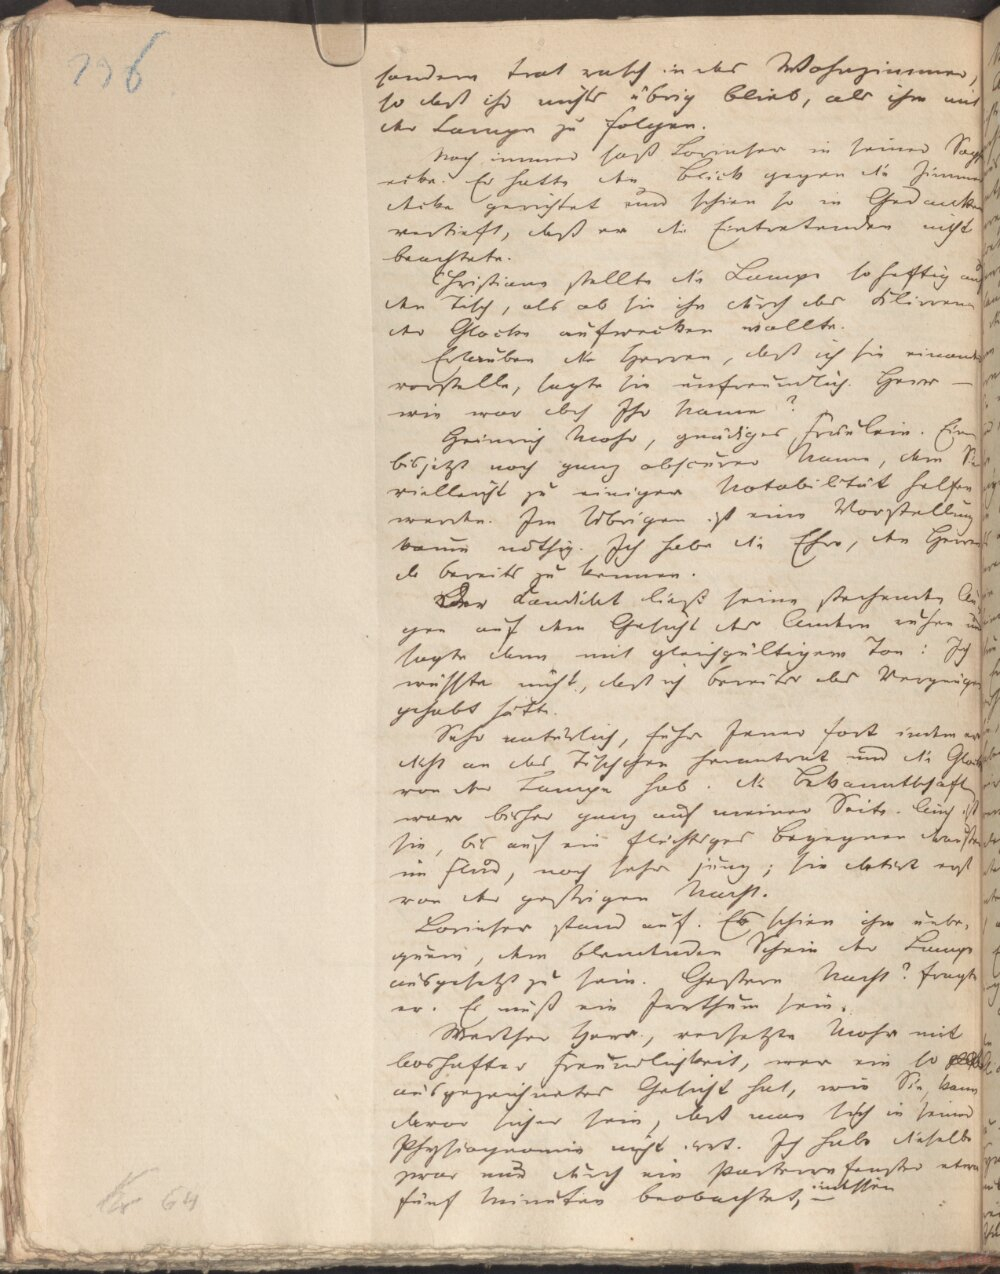 236
sondern trat rasch in das Wohnzimmer,
so daß ihr nichts übrig blieb, als ihm mit
der Lampe zu folgen.
Noch immer saß Lorinser in seiner Sopha
ecke. Er hatte den Blick gegen die Zimmer
decke gerichtet und schien so in Gedanken
vertieft, daß er die Eintretenden nicht
beachtete.
Christiane stellte die Lampe so heftig auf
den Tisch, als ob sie ihn durch das Klirren
der Glocke aufwecken wollte.
Erlauben die Herren, daß ich sie einander
vorstelle, sagte sie unfreundlich. Herr —
wie war doch Ihr Name?
Heinrich Mohr, gnädiges Fräulein. Ein
bis jetzt noch ganz obscurer Name, dem Sie
vielleicht zu einiger Notabilität helfen
werden. Im Übrigen ist eine Vorstellung
kaum nöthig. Ich habe die Ehre, den Herrn
da bereits zu kennen.
Der Candidat ließ seine stechenden Au
gen auf dem Gesicht des Andern ruhen und
sagte dann mit gleichgültigem Ton: Ich
wüsste nicht, daß ich bereits das Vergnügen
gehabt hätte.
Sehr natürlich, fuhr Jener fort indem er
dicht an das Tischchen herantrat und die Glocke
von der Lampe hob. Die Bekanntschaft
war bisher ganz auf meiner Seite. Auch ist
sie, bis auf ein flüchtiges Begegnen draußen
im Flur, noch sehr jung; sie datirt erst
von der gestrigen Nacht.
Lorinser stand auf. Es schien ihm unbe,
quem, dem blendenden Schein der Lampe
ausgesetzt zu sein. Gestern Nacht? fragte
er. Es muß ein Irrthum sein.
Werther Herr, versetzte Mohr mit
boshafter Freundlichkeit, wer ein so
ausgezeichnetes Gesicht hat, wie Sie, kann
davor sicher sein, daß man sich in seiner
Physiognomie nicht irrt. Ich habe dieselbe
zwar nur durch ein Parterrefenster etwa
fünf Minuten beobachtet, indessen
64